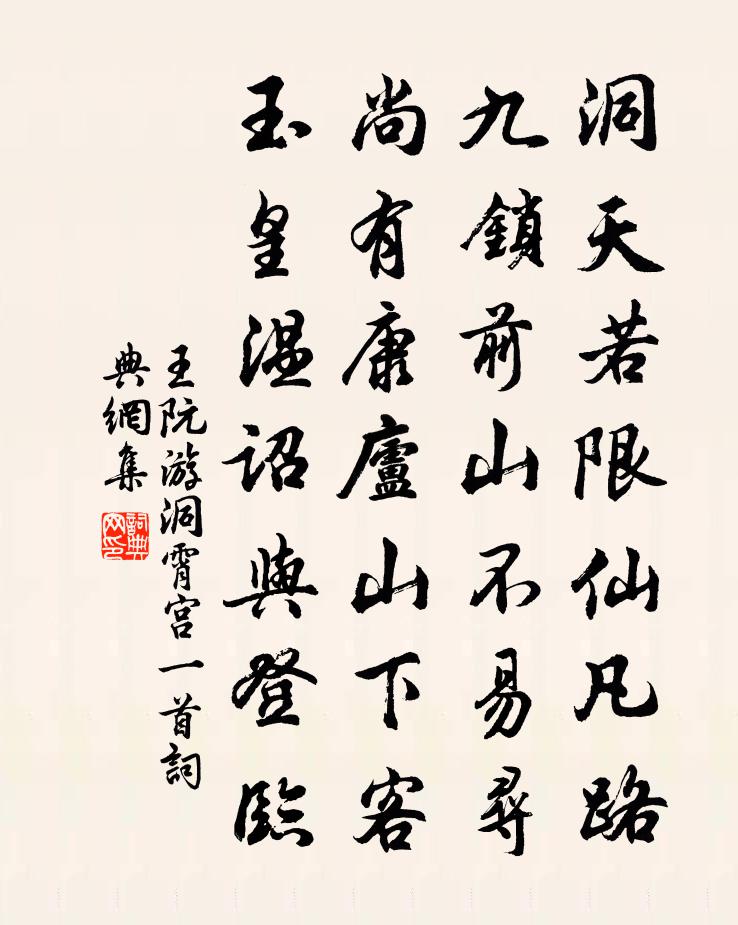 洞天若限仙凡路
九鎖前山不易尋
尚有康廬山下客
玉皇温詔與登臨
王阮游洞霄宮一首詞
典網集
詞典
网印